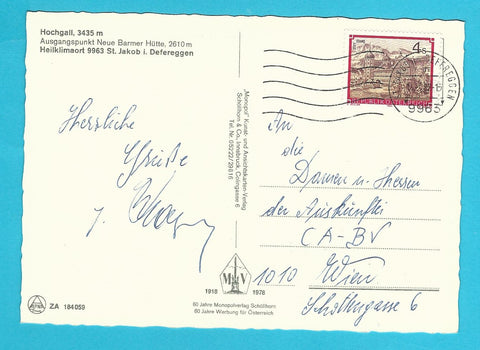 Hochgall, 3435 m
Ausgangspunkt Neue Barmer Hütte, 2610 m
Heilklimaort 9963 St. Jakob i. Defereggen
Herzliche
Grüße
„Monopol" Kunst- und Ansichtskarten-Verlag
Schöllhorn & Co., Innsbruck, Colingasse 6
Tel. Nr. 05222/29816
4s
REPUBLIK ÖSTERREICH
9963
An
die
Damen u. Herren
der Auskunft
CA-BV
1010 Wien
Schottengasse 6
1918 1978
60 Jahre Monopolverlag Schöllhorn
60 Jahre Werbung für Österreich
ZA 184059